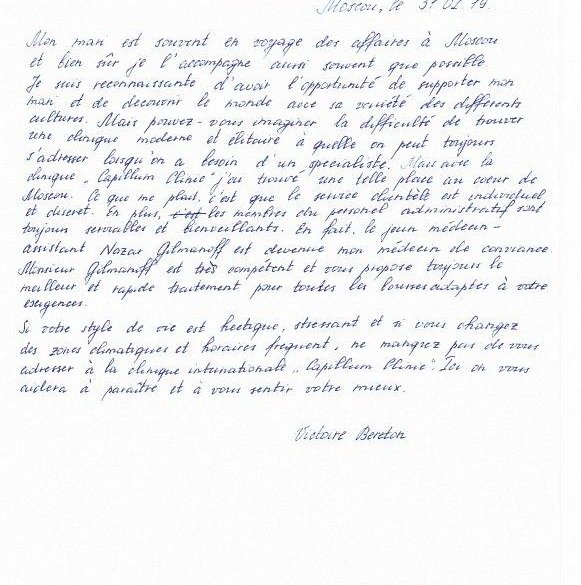 Moscou, le 31 01 19.
Mon man est souvent en voyage des affaires à Moscou
et bien sûr je l'accompagne aussi souvent que possible.
Je suis reconnaissante d'avoir l'opportunité de supporter mon
man et de decouvrir le monde avec sa variété des différents
cultures. Mais pouvez-vous imaginer la difficulté de trouver
une clinique moderne et élitaire à quelle on peut toujours
s'adresser lorsqu'on a besoin d'un specialiste! Mais avec la
clinique „Capillum Clinic" j'ai trouvé une telle place au coeur de
Moscou. Ce que me plait, c'est que le service clientèle est individuel
et discret. En plus, c'est les membres du personel administratif sont
toujours serviables et bienveillants. En fait, le jeun médecin-
assistant Nazar Gilmanoff est devenue mon médecin de conviance.
Monsieur Gilmanoff est très compétent et vous propose toujours le
meilleur et rapide traitement pour toutes les adaptés à votre
exigences.
Si votre style de vie est hectique, stressant et si vous changez
des zones climatiques et horaires frequent, ne manquez pas de vous
adresser à la clinique internationale „Capillum Clinic". Ici on vous
aidera à paraître et à vous sentir votre mieux.
Victoire Bereton